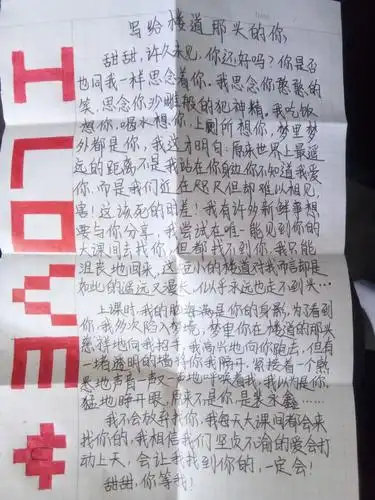 写给楼道那头的你
甜甜,许久未见,你还好吗?你是否
也同我一样思念着你。我思念你憨憨的
笑,思念你沙雕般的犯神精,我吃饭
想你,喝水想你,上厕所想你,梦里梦
外都是你,我这才明白:原来世界上最遥
远的距离不是我站在你身边你不知道我爱
你,而是我们近在咫尺但却难以相见,
害!这该死的时差!我有许多新鲜事想
要与你分享,我尝试在唯一能见到你的
大课间去找你,但都找不到你,我只能
沮丧地回来,这短小的楼道对我而言却是
如此的遥远又漫长,似乎永远也走不到头…
上课时,我的脑海满是你的身影,为了看到
你,我多次陷入梦境,梦里你在楼道的那头
憨拌地向我招手,我高兴地向你跑去,但有
一堵透明的墙将你我隔开,紧接着一个熟
悉地声音一声又一声地呼唤着我,我以为是你,
猛地睁开眼,原来不是你,是裴永鑫……
我不会放弃找你,我每天大课间都会来
找你的,我相信我们坚贞不渝的爱会打
动上天,会让我找到你的,一定会!
甜甜,你等我!
I LOVE